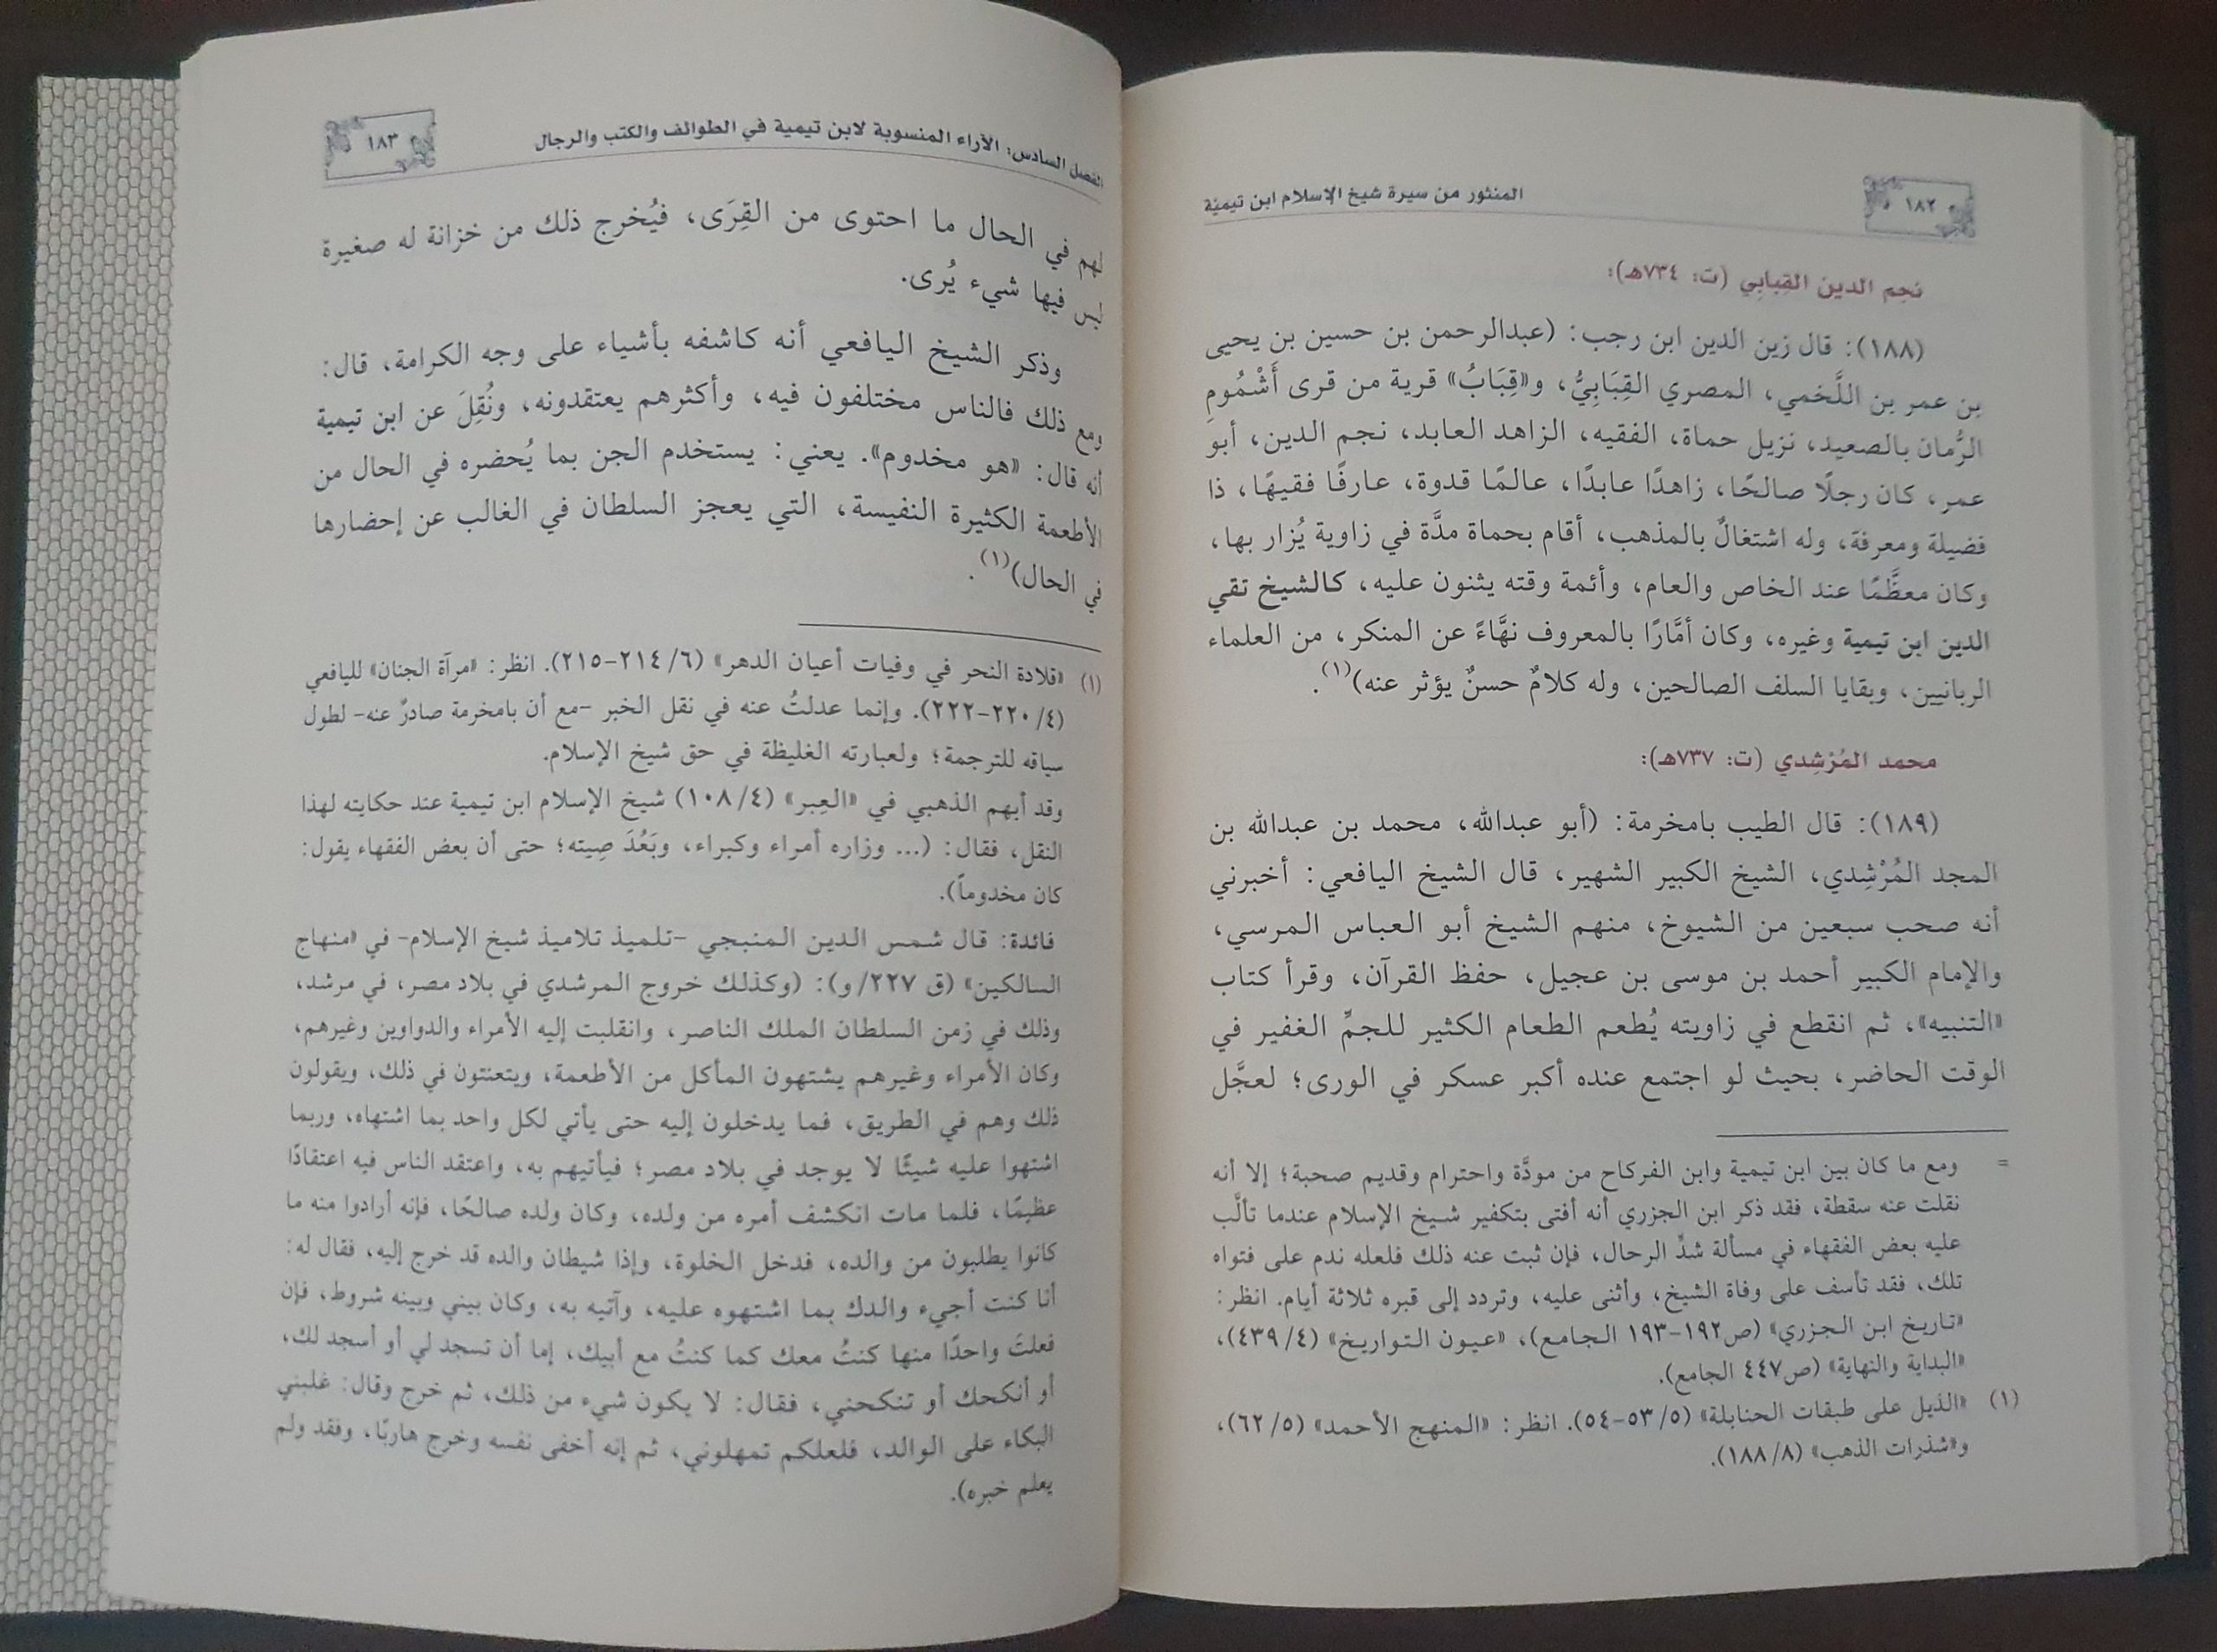 ١٨٢
المنثور من سيرة شيخ الإسلام ابن تيميّة
نجم الدين القِبابي (ت: ٧٣٤هـ):
(١٨٨): قال زين الدين ابن رجب: (عبدالرحمن بن حسين بن يحيى
بن عمر بن اللَّخمي، المصري القِبَابِيُّ، و«قِبَابُ» قرية من قرى أَشْمُومِ
الرُّمان بالصعيد، نزيل حماة، الفقيه، الزاهد العابد، نجم الدين، أبو
عمر، كان رجلًا صالحًا، زاهدًا عابدًا، عالمًا قدوة، عارفًا فقيهًا، ذا
فضيلة ومعرفة، وله اشتغالٌ بالمذهب، أقام بحماة مدَّة في زاوية يُزار بها،
وكان معظَّمًا عند الخاص والعام، وأئمة وقته يثنون عليه، كالشيخ تقي
الدين ابن تيمية وغيره، وكان أمَّارًا بالمعروف نهَّاءً عن المنكر، من العلماء
الربانيين، وبقايا السلف الصالحين، وله كلامٌ حسنٌ يؤثر عنه)(١).
محمد المُرْشِدي (ت: ٧٣٧هـ):
(١٨٩): قال الطيب بامخرمة: (أبو عبدالله، محمد بن عبدالله بن
المجد المُرْشِدي، الشيخ الكبير الشهير، قال الشيخ اليافعي: أخبرني
أنه صحب سبعين من الشيوخ، منهم الشيخ أبو العباس المرسي،
والإمام الكبير أحمد بن موسى بن عجيل، حفظ القرآن، وقرأ كتاب
«التنبيه»، ثم انقطع في زاويته يُطعم الطعام الكثير للجمِّ الغفير في
الوقت الحاضر، بحيث لو اجتمع عنده أكبر عسكر في الورى؛ لعجَّل
= ومع ما كان بين ابن تيمية وابن الفركاح من مودَّة واحترام وقديم صحبة؛ إلا أنه
نقلت عنه سقطة، فقد ذكر ابن الجزري أنه أفتى بتكفير شيخ الإسلام عندما تألَّب
عليه بعض الفقهاء في مسألة شدِّ الرحال، فإن ثبت عنه ذلك فلعله ندم على فتواه
تلك، فقد تأسف على وفاة الشيخ، وأثنى عليه، وتردد إلى قبره ثلاثة أيام. انظر:
«تاريخ ابن الجزري» (ص١٩٢-١٩٣ الجامع)، «عيون التواريخ» (٤/٤٣٩)،
«البداية والنهاية» (ص٤٤٧ الجامع).
(١) «الذيل على طبقات الحنابلة» (٥/٥٣-٥٤). انظر: «المنهج الأحمد» (٥/٦٢)،
و«شذرات الذهب» (٨/١٨٨).
الفصل السادس: الآراء المنسوبة لابن تيمية في الطوائف والكتب والرجال
١٨٣
لهم في الحال ما احتوى من القِرَى، فيُخرج ذلك من خزانة له صغيرة
ليس فيها شيء يُرى.
وذكر الشيخ اليافعي أنه كاشفه بأشياء على وجه الكرامة، قال:
ومع ذلك فالناس مختلفون فيه، وأكثرهم يعتقدونه، ونُقِلَ عن ابن تيمية
أنه قال: «هو مخدوم». يعني: يستخدم الجن بما يُحضره في الحال من
الأطعمة الكثيرة النفيسة، التي يعجز السلطان في الغالب عن إحضارها
في الحال)(١).
(١) «قلادة النحر في وفيات أعيان الدهر» (٦/٢١٤-٢١٥). انظر: «مرآة الجنان» لليافعي
(٤/٢٢٠-٢٢٢). وإنما عدلتُ عنه في نقل الخبر -مع أن بامخرمة صادرٌ عنه- لطول
سياقه للترجمة؛ ولعبارته الغليظة في حق شيخ الإسلام.
وقد أبهم الذهبي في «العِبر» (٤/١٠٨) شيخ الإسلام ابن تيمية عند حكايته لهذا
النقل، فقال: (... وزاره أمراء وكبراء، وبَعُدَ صِيته؛ حتى أن بعض الفقهاء يقول:
كان مخدوماً).
فائدة: قال شمس الدين المنبجي -تلميذ تلاميذ شيخ الإسلام- في «منهاج
السالكين» (ق ٢٢٧/و): (وكذلك خروج المرشدي في بلاد مصر، في مرشد،
وذلك في زمن السلطان الملك الناصر، وانقلبت إليه الأمراء والدواوين وغيرهم،
وكان الأمراء وغيرهم يشتهون المأكل من الأطعمة، ويتعنتون في ذلك، ويقولون
ذلك وهم في الطريق، فما يدخلون إليه حتى يأتي لكل واحد بما اشتهاه، وربما
اشتهوا عليه شيئًا لا يوجد في بلاد مصر؛ فيأتيهم به، واعتقد الناس فيه اعتقادًا
عظيمًا، فلما مات انكشف أمره من ولده، وكان ولده صالحًا، فإنه أرادوا منه ما
كانوا يطلبون من والده، فدخل الخلوة، وإذا شيطان والده قد خرج إليه، فقال له:
أنا كنت أجيء والدك بما اشتهوه عليه، وآتيه به، وكان بيني وبينه شروط، فإن
فعلتَ واحدًا منها كنتُ معك كما كنتُ مع أبيك، إما أن تسجد لي أو أسجد لك،
أو أنكحك أو تنكحني، فقال: لا يكون شيء من ذلك، ثم خرج وقال: غلبني
البكاء على الوالد، فلعلكم تمهلوني، ثم إنه أخفى نفسه وخرج هاربًا، وفقد ولم
يعلم خبره).